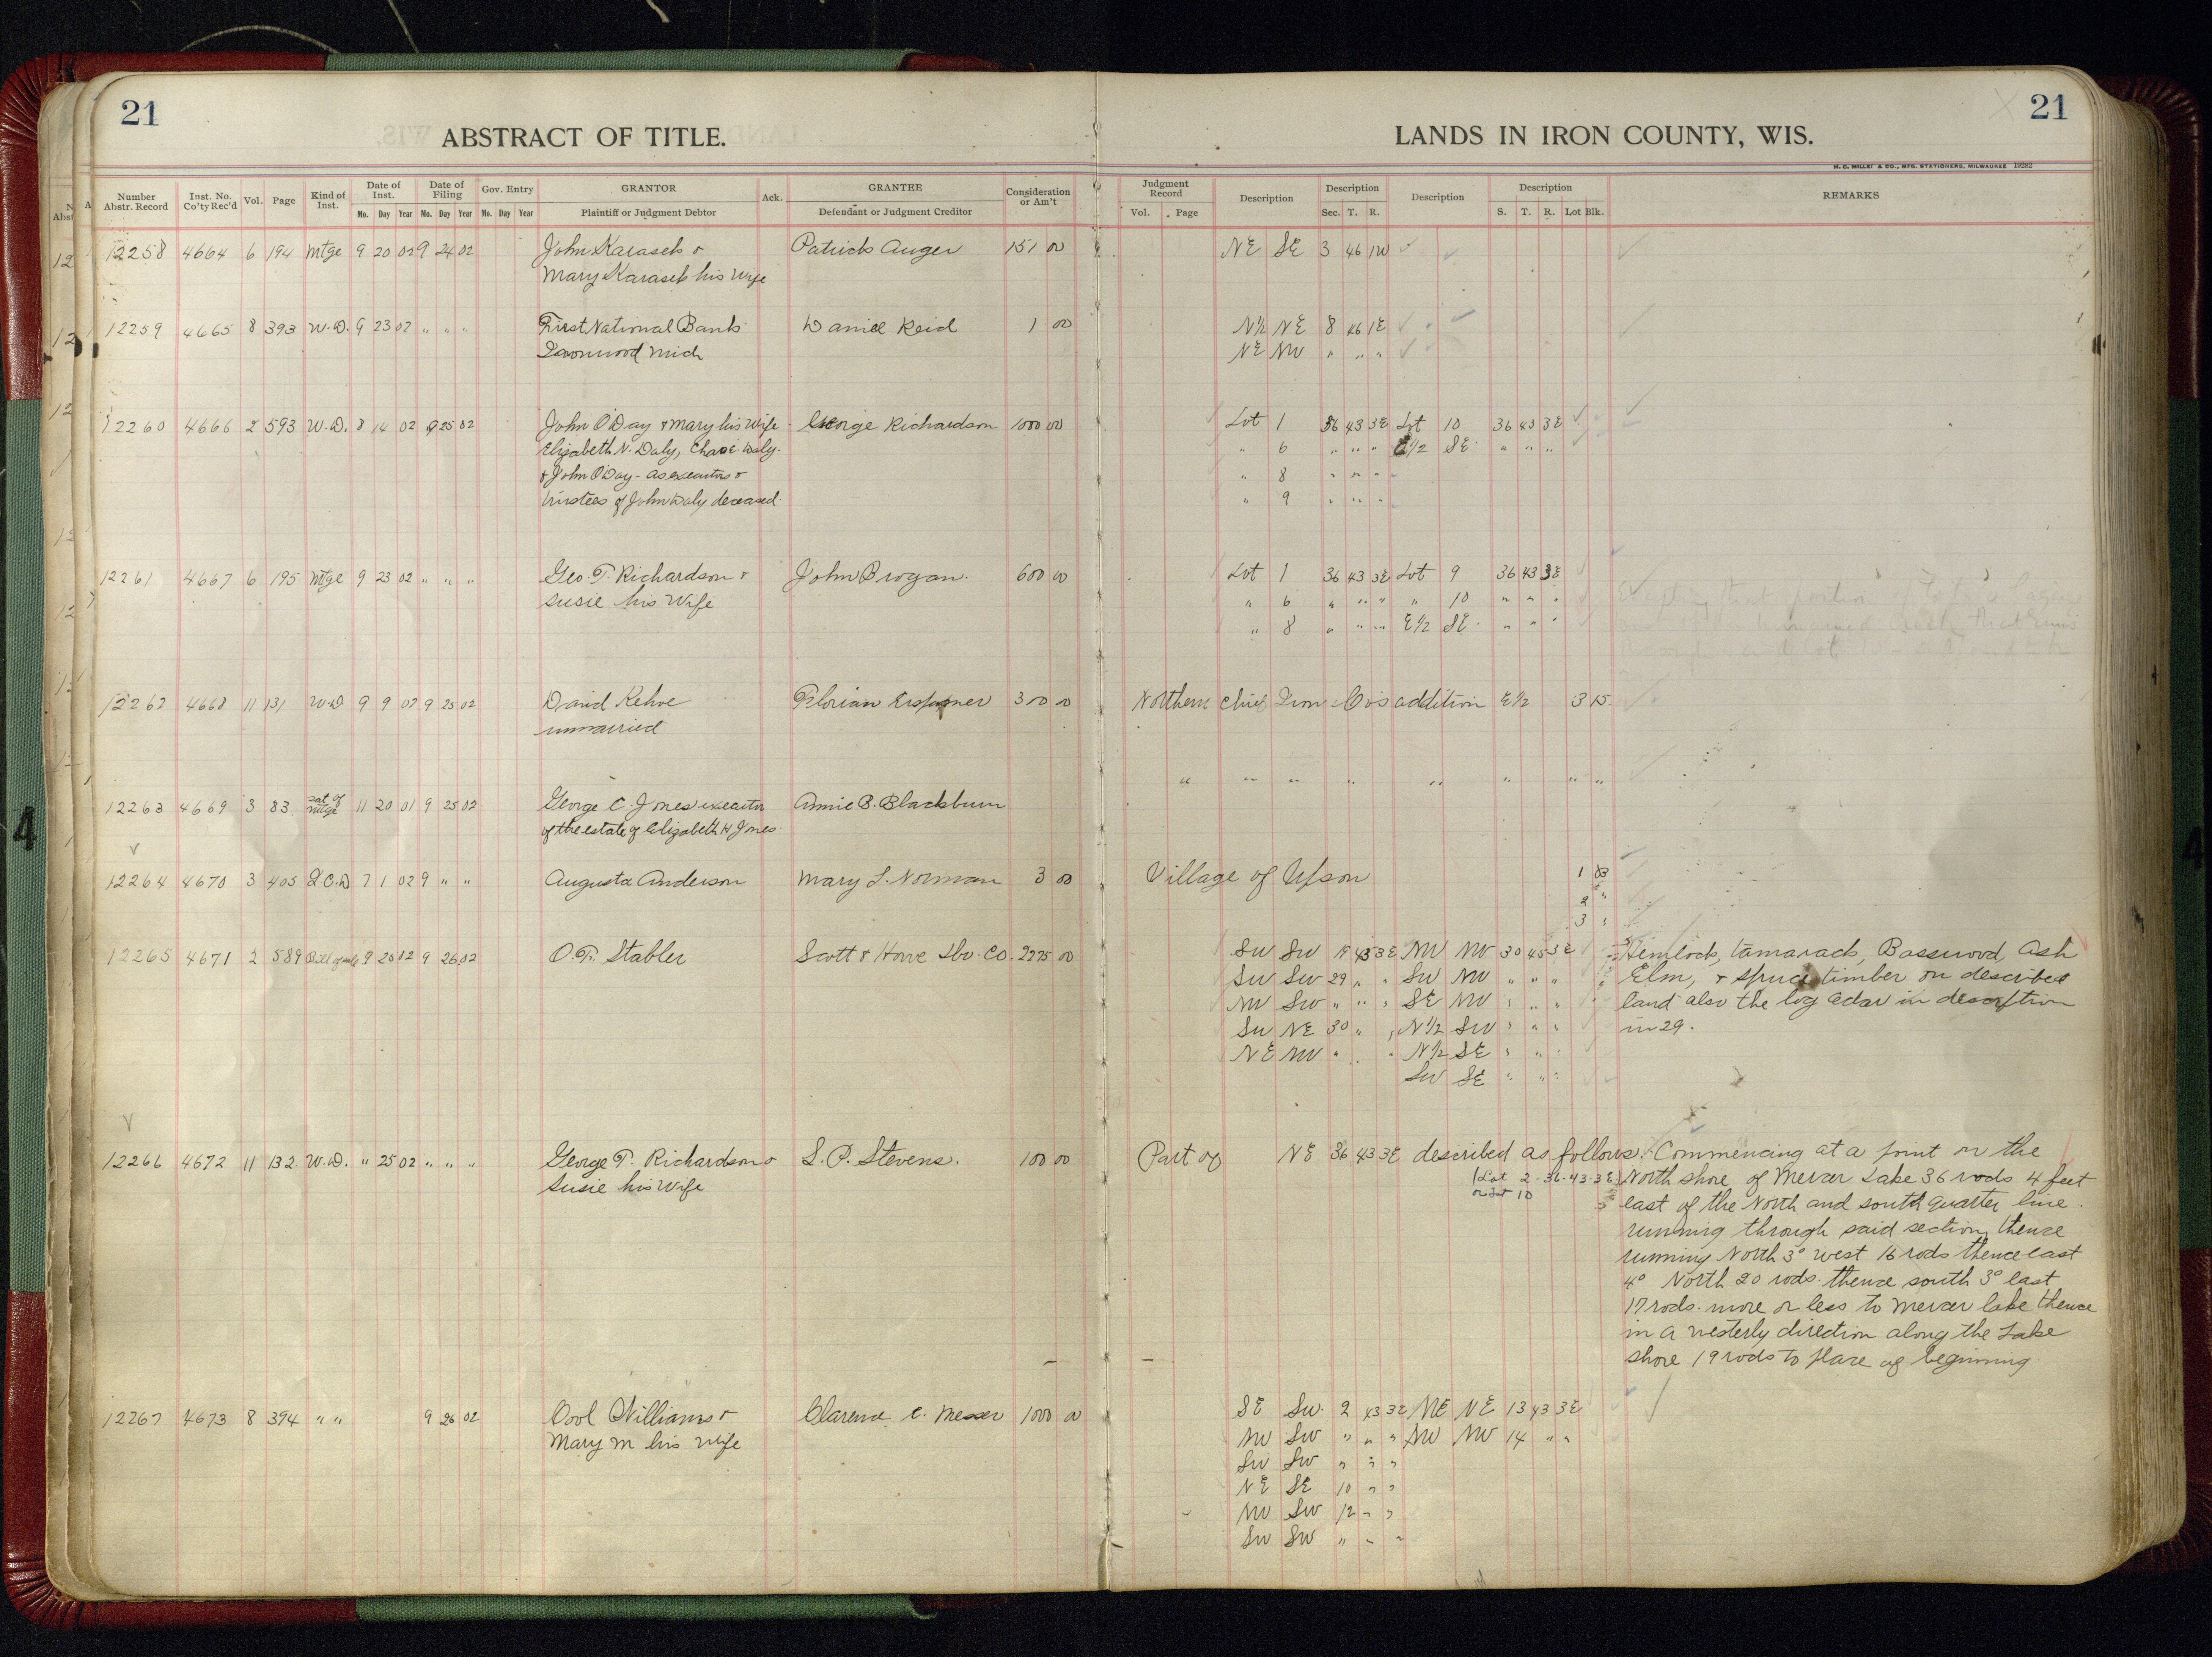 21
21
ABSTRACT OF TITLE.
LANDS IN IRON COUNTY, WIS.
Number Abstr. Record Inst. No. Co'ty Rec'd Vol. Page Kind of Inst. Date of Inst. Mo. Day Year Date of Filing Mo. Day Year Gov. Entry Mo. Day Year GRANTOR Plaintiff or Judgment Debtor Ack. GRANTEE Defendant or Judgment Creditor Consideration or Am't Judgment Record Vol. Page Description Description Sec. T. R. Description Description S. T. R. Lot Blk. REMARKS
12258 4664 6 194 Mtge 9 20 02 9 24 02 John Karasek & Patrick Auger 151 00 NE SE 3 46 1W
Mary Karasek his wife
12259 4665 8 393 W.D. 9 23 02 " " " First National Bank Daniel Reid 1 00 N½ NE 8 46 1E
Ironwood Mich NE NW " " "
12260 4666 2 593 W.D. 8 14 02 9 25 02 John O'Day & Mary his wife George Richardson 1000 00 Lot 1 36 43 3E Lot 10 36 43 3E
Elizabeth N. Daly, Chas E. Daly " 6 " " " E1/2 SE " " "
& John O'Day - as executors & " 8 " " "
trustees of John Daly deceased. " 9 " " "
12261 4667 6 195 Mtge 9 23 02 " " " Geo. T. Richardson & John Brogan. 600 00 Lot 1 36 43 3E Lot 9 36 43 3E
Susie his Wife " 6 " " " " 10 " " "
" 8 " " " E1/2 SE " " "
12262 4668 11 131 W.D 9 9 02 9 25 02 David Kehoe Florian 300 00 Northern Chief Iron Co's addition E1/2 3 15
unmarried
" " " " " " " "
12263 4669 3 83 Sat of Mtge 11 20 01 9 25 02 George C. Jones executor Annie B. Blackburn
of the estate of Elizabeth H Jones.
12264 4670 3 405 Q.C.D 7 1 02 9 " " Augusta Anderson Mary L. Norman 3 00 Village of Upson 1
2 "
3 "
12265 4671 2 589 Bill of sale 9 25 02 9 26 02 O.F. Stabler Scott & Howe Lbr. Co. 2275 00 SW SW 19 45 3E NW NW 30 45 3E Hemlock, tamarack, Basswood, Ash
SW SW 29 " " SW NW " " " Elm, & spruce timber on described
NW SW " " " SE NW " " " land also the log cedar in descrption
SW NE 30 " " N1/2 SW " " " in 29.
NE NW " " " N1/2 SE " " "
SW SE " " "
12266 4672 11 132 W.D. " 25 02 " " " George T. Richardson & S. P. Stevens. 100 00 Part of NE 36 43 3E described as follows. Commencing at a point on the
Susie his Wife (Lot 2-36-43-3E) North shore of Mercer Lake 36 rods 4 feet
or Lot 10 east of the North and south quarter line
running through said section, thence
running North 3° west 16 rods thence east
4° North 20 rods. thence south 3° east
17 rods. more or less to mercer lake thence
in a westerly direction along the Lake
shore 19 rods to place of beginning.
12267 4673 8 394 " " 9 26 02 Williams & Clarence C. Messer 1000 00 SE SW 2 43 3E NE NE 13 43 3E
Mary M his wife NW SW " " " NW NW 14 " "
SW SW " " "
NE SE 10 " "
NW SW 12 " "
SW SW " " "